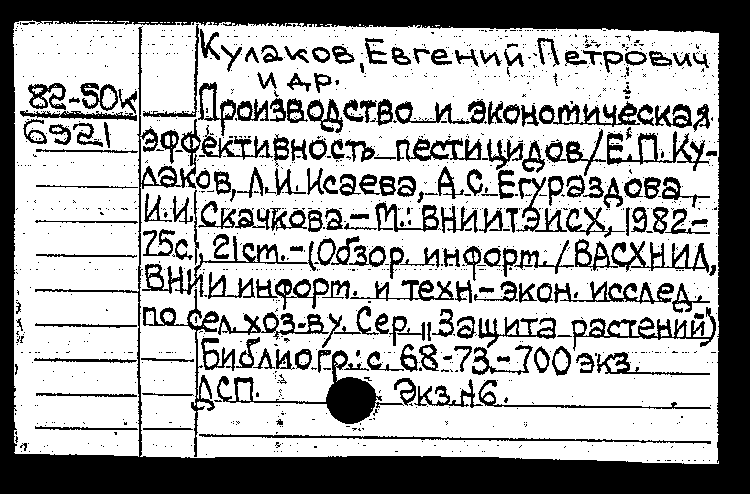 Кулаков, Евгений Петрович
и др.
82-50к
6921
Производство и экономическая
эффективность пестицидов/Е.П.Ку-
лаков, Л.И.Исаева, А.С.Егураздова,
И.И.Скачкова.–М.: ВНИИТЭИСХ, 1982.–
75с., 21см.–(Обзор. информ. / ВАСХНИЛ,
ВНИИ информ. и техн.-экон. исслед.
по сел. хоз-ву. Сер. „Защита растений")
Библиогр.: с. 68-73.–700экз.
ДСП. Экз.№6.